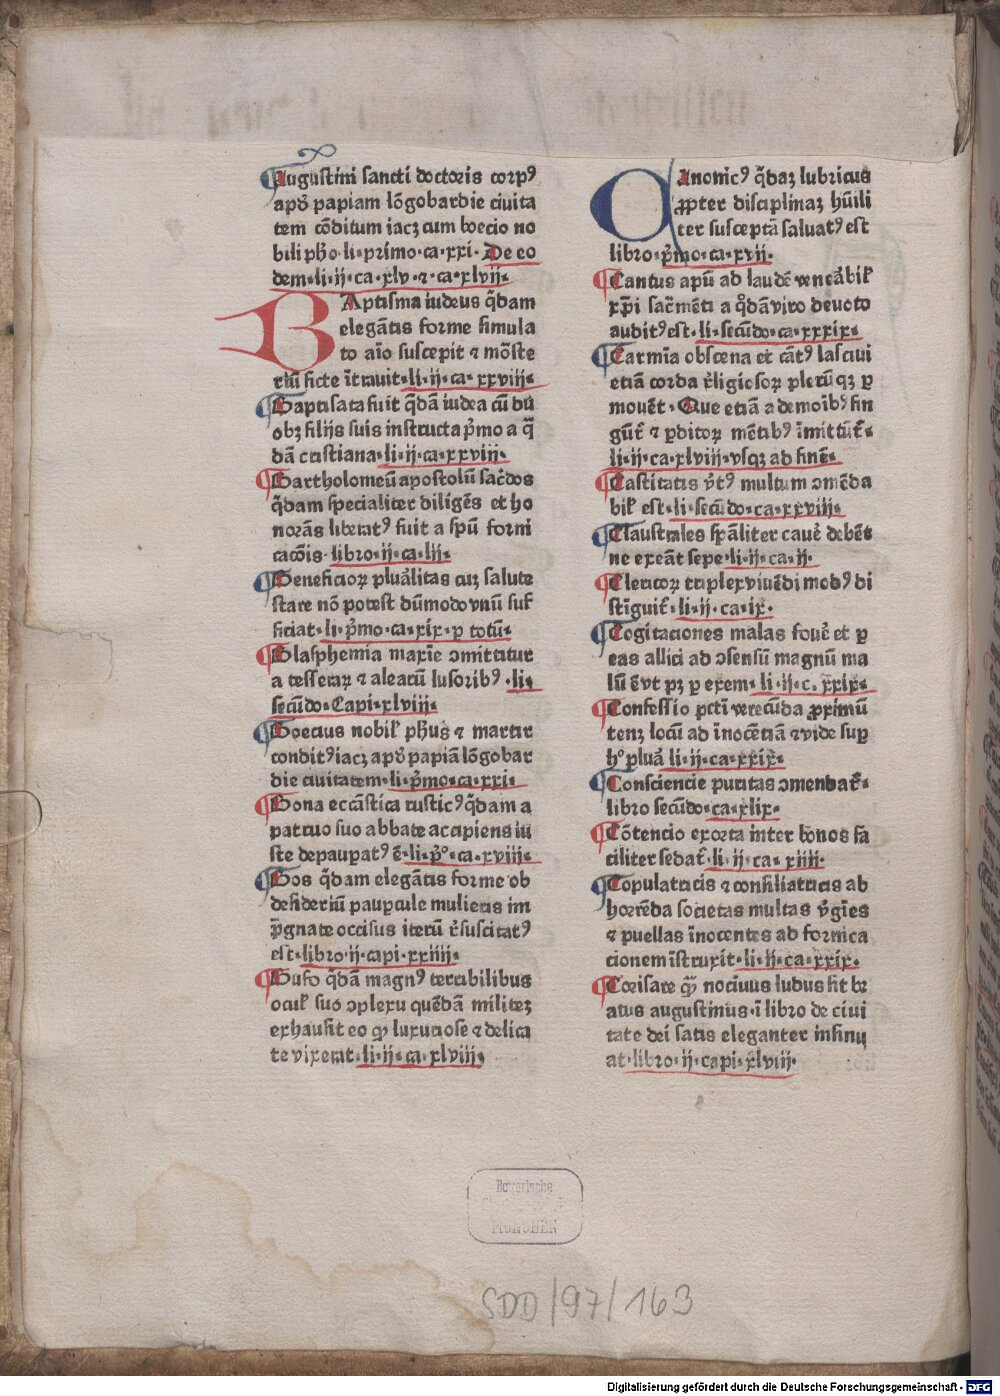 Augustini sancti doctoris corpꝰ
apud papiam lōgobardie ciuita
tem cōditum iacꝫ cum boecio no
bili pho·li·primo·ca·xxi· De eo
dem·li·ij·ca·xlv·⁊·ca·xlvij·
BAptisma iudeus q̄dam
elegātis forme simula
to aīo suscepit ⁊ mōste
riū ficte ītrauit·li·ij·ca·xxviij·
Baptisata fuit q̄dā iudea cū du
obꝫ filijs suis instructa p̄mo a q̄
dā cristiana·li·ij·ca·xxviij·
Bartholomeū apostolū sac̄dos
q̄dam specialiter diligēs et ho
norās liberatꝰ fuit a spū forni
cacōis·libro·ij·ca·lij·
Beneficioꝝ plural̓itas cuꝫ salute
stare nō potest dūmodo vnū suf
ficiat·li·p̄mo·ca·xix·ꝑ totū·
Blasphemia maxīe ꝯmittitur
a tesseraꝝ ⁊ aleatū lusoribꝰ·li·
secūdo·Capi·xlviij·
Boecius nobil̓ phūs ⁊ martir
conditꝰ iacꝫ apud papiā lōgobar
die ciuitatem·li·p̄mo·ca·xxi·
Bona ecc̄astica rusticꝰ q̄dam a
patruo suo abbate accipiens iu
ste depaupatꝰ ē·li·pͦ·ca·xviij·
Bos q̄dam elegātis forme ob
desideriū paupcule mulieris im
p̄gnate occisus iterū r̄suscitatꝰ
est·libro·ij·capi·xxiiij·
Bufo q̄dam magnꝰ terribilibus
ocul̓ suo ꝯplexu quēdā militeꝫ
exhausit eo ꝙ luxuriose ⁊ delica
te vixerat·li·ij·ca·xlviij·
CAnonicꝰ q̄daꝫ lubricus
ꝓpter disciplinaꝫ hūili
ter susceptā saluatꝰ est
libro·p̄mo·ca·xvij·
Cantus apud ad laudē venerabil̓
xp̄i sac̄mēti a q̄dā viro deuoto
auditꝰ est·li·secūdo·ca·xxxix·
Carmīa obscena et cātꝰ lasciui
etiā corda r̄ligiosoꝝ plerūqꝫ ꝑ
mouēt·Que etiā a demoībꝰ fin
gūt̄ ⁊ ꝑditoꝝ mētibꝰ īmittūt̄·
li·ij·ca·xlviij·vsqꝫ ad finē·
Castitatis v̄tꝰ multum ꝯmēda
bil̓ est·li·secūdo·ca·xxviij·
Claustrales sp̄aliter cauē debēt
ne exeāt sepe·li·ij·ca·ij·
Clericoꝝ triplex viuēdi modꝰ di
stīguit̄·li·ij·ca·ix·
Cogitaciones malas fouē et ꝑ
eas allici ad ꝯsensū magnū ma
lū ē vt pꝫ ꝑ exem·li·ij·c·xxix·
Confessio pcti verecūda ꝓximū
tenꝫ locū ad īnocētiā ⁊ vide suꝑ
hͦ plurā li·ij·ca·xxix·
Consciencie puritas ꝯmendat̄·
libro secūdo·ca·xlix·
Cōtencio exorta inter bonos fa
ciliter sedat̄·li·ij·ca·xiiij·
Copulatricis ⁊ consiliatricis ab
horrēda societas multas v̄gīes
⁊ puellas īnocentes ad fornica
cionem īstruxit·li·ij·ca·xxix·
Corisare ꝙ nociuus ludus sit be
atus augustinus·ī libro de ciui
tate dei satis eleganter insinu
at·libro·ij·capi·xlviij·
Bayerische
MÜNCHEN
SDD/97/163
Digitalisierung gefördert durch die Deutsche Forschungsgemeinschaft - DFG